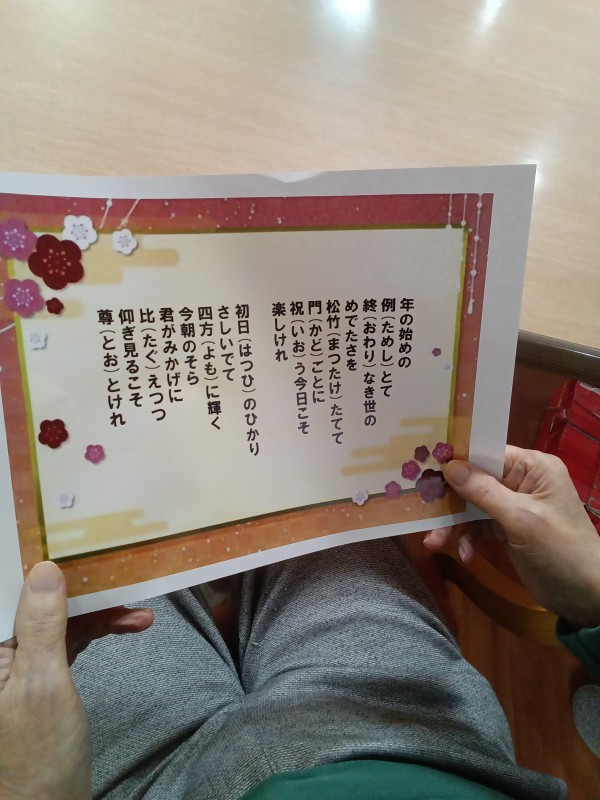 年の始めの
例(ためし)とて
終(おわり)なき世の
めでたさを
松竹(まつたけ)たてて
門(かど)ごとに
祝(いお)う今日こそ
楽しけれ
初日(はつひ)のひかり
さしいでて
四方(よも)に輝く
今朝のそら
君がみかげに
比(たぐ)えつつ
仰ぎ見るこそ
尊(とお)とけれ